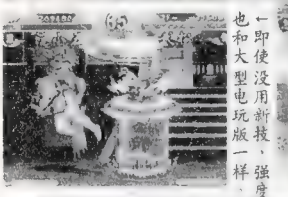 ←即使没用新技、强度
也和大型电玩版一样，